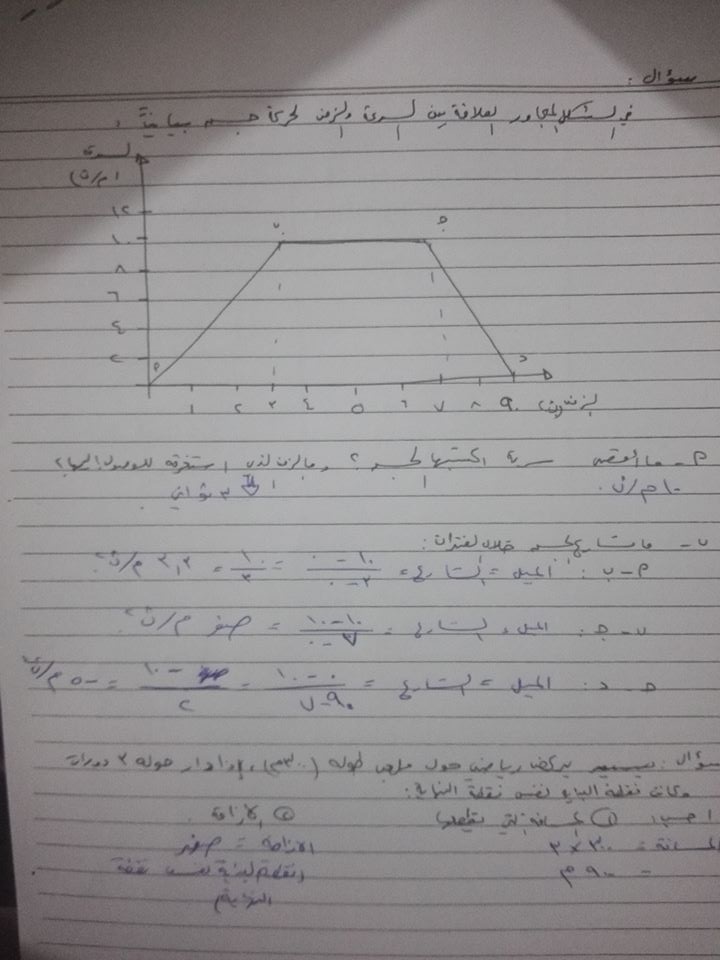 سؤال :
في الشكل المجاور العلاقة بين السرعة والزمن لحركة جسم بيانياً ،
السرعة
(م/ث)
١٢
١٠
٨
٦
٤
٢
ب
ج
م
د
١ ٢ ٣ ٤ ٥ ٦ ٧ ٨ ٩
الزمن (ث)
م - ما أقصى سرعة اكتسبها الجسم ؟ وما الزمن الذي استغرقه للوصول إليها ؟
١٠ م/ث . ٣ ثواني
ب - ما تسارع الجسم خلال الفترات :
م - ب : الميل = التسارع = ١٠ - ٠ / ٣ - ٠ = ١٠ / ٣ = ٣,٣ م/ث٢
ب - ج : الميل = التسارع = ١٠ - ١٠ / ٧ - ٠ = صفر م/ث٢
ج - د : الميل = التسارع = ٠ - ١٠ / ٩ - ٧ = - ١٠ / ٢ = - ٥ م/ث٢
سؤال : يركض رياضي حول ملعب طوله (٣٠٠م) ، إذا دار حوله ٣ دورات
وكانت نقطة البداية نفس نقطة النهاية :
احسب : ① المسافة التي يقطعها ② الإزاحة
المسافة = ٣٠٠ × ٣ الإزاحة = صفر
= ٩٠٠ م نقطة البداية نفسها نقطة
النهاية